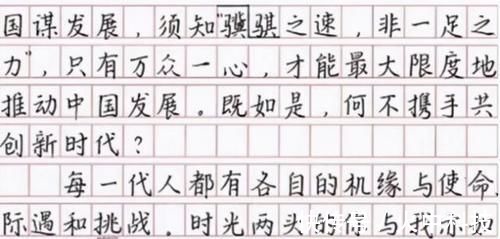 国谋发展，须知“骥骐之速，非一足之
力”，只有万众一心，才能最大限度地
推动中国发展。既如是，何不携手共
创新时代？
每一代人都有各自的机缘与使命.
际遇和挑战。时光两头的你与我